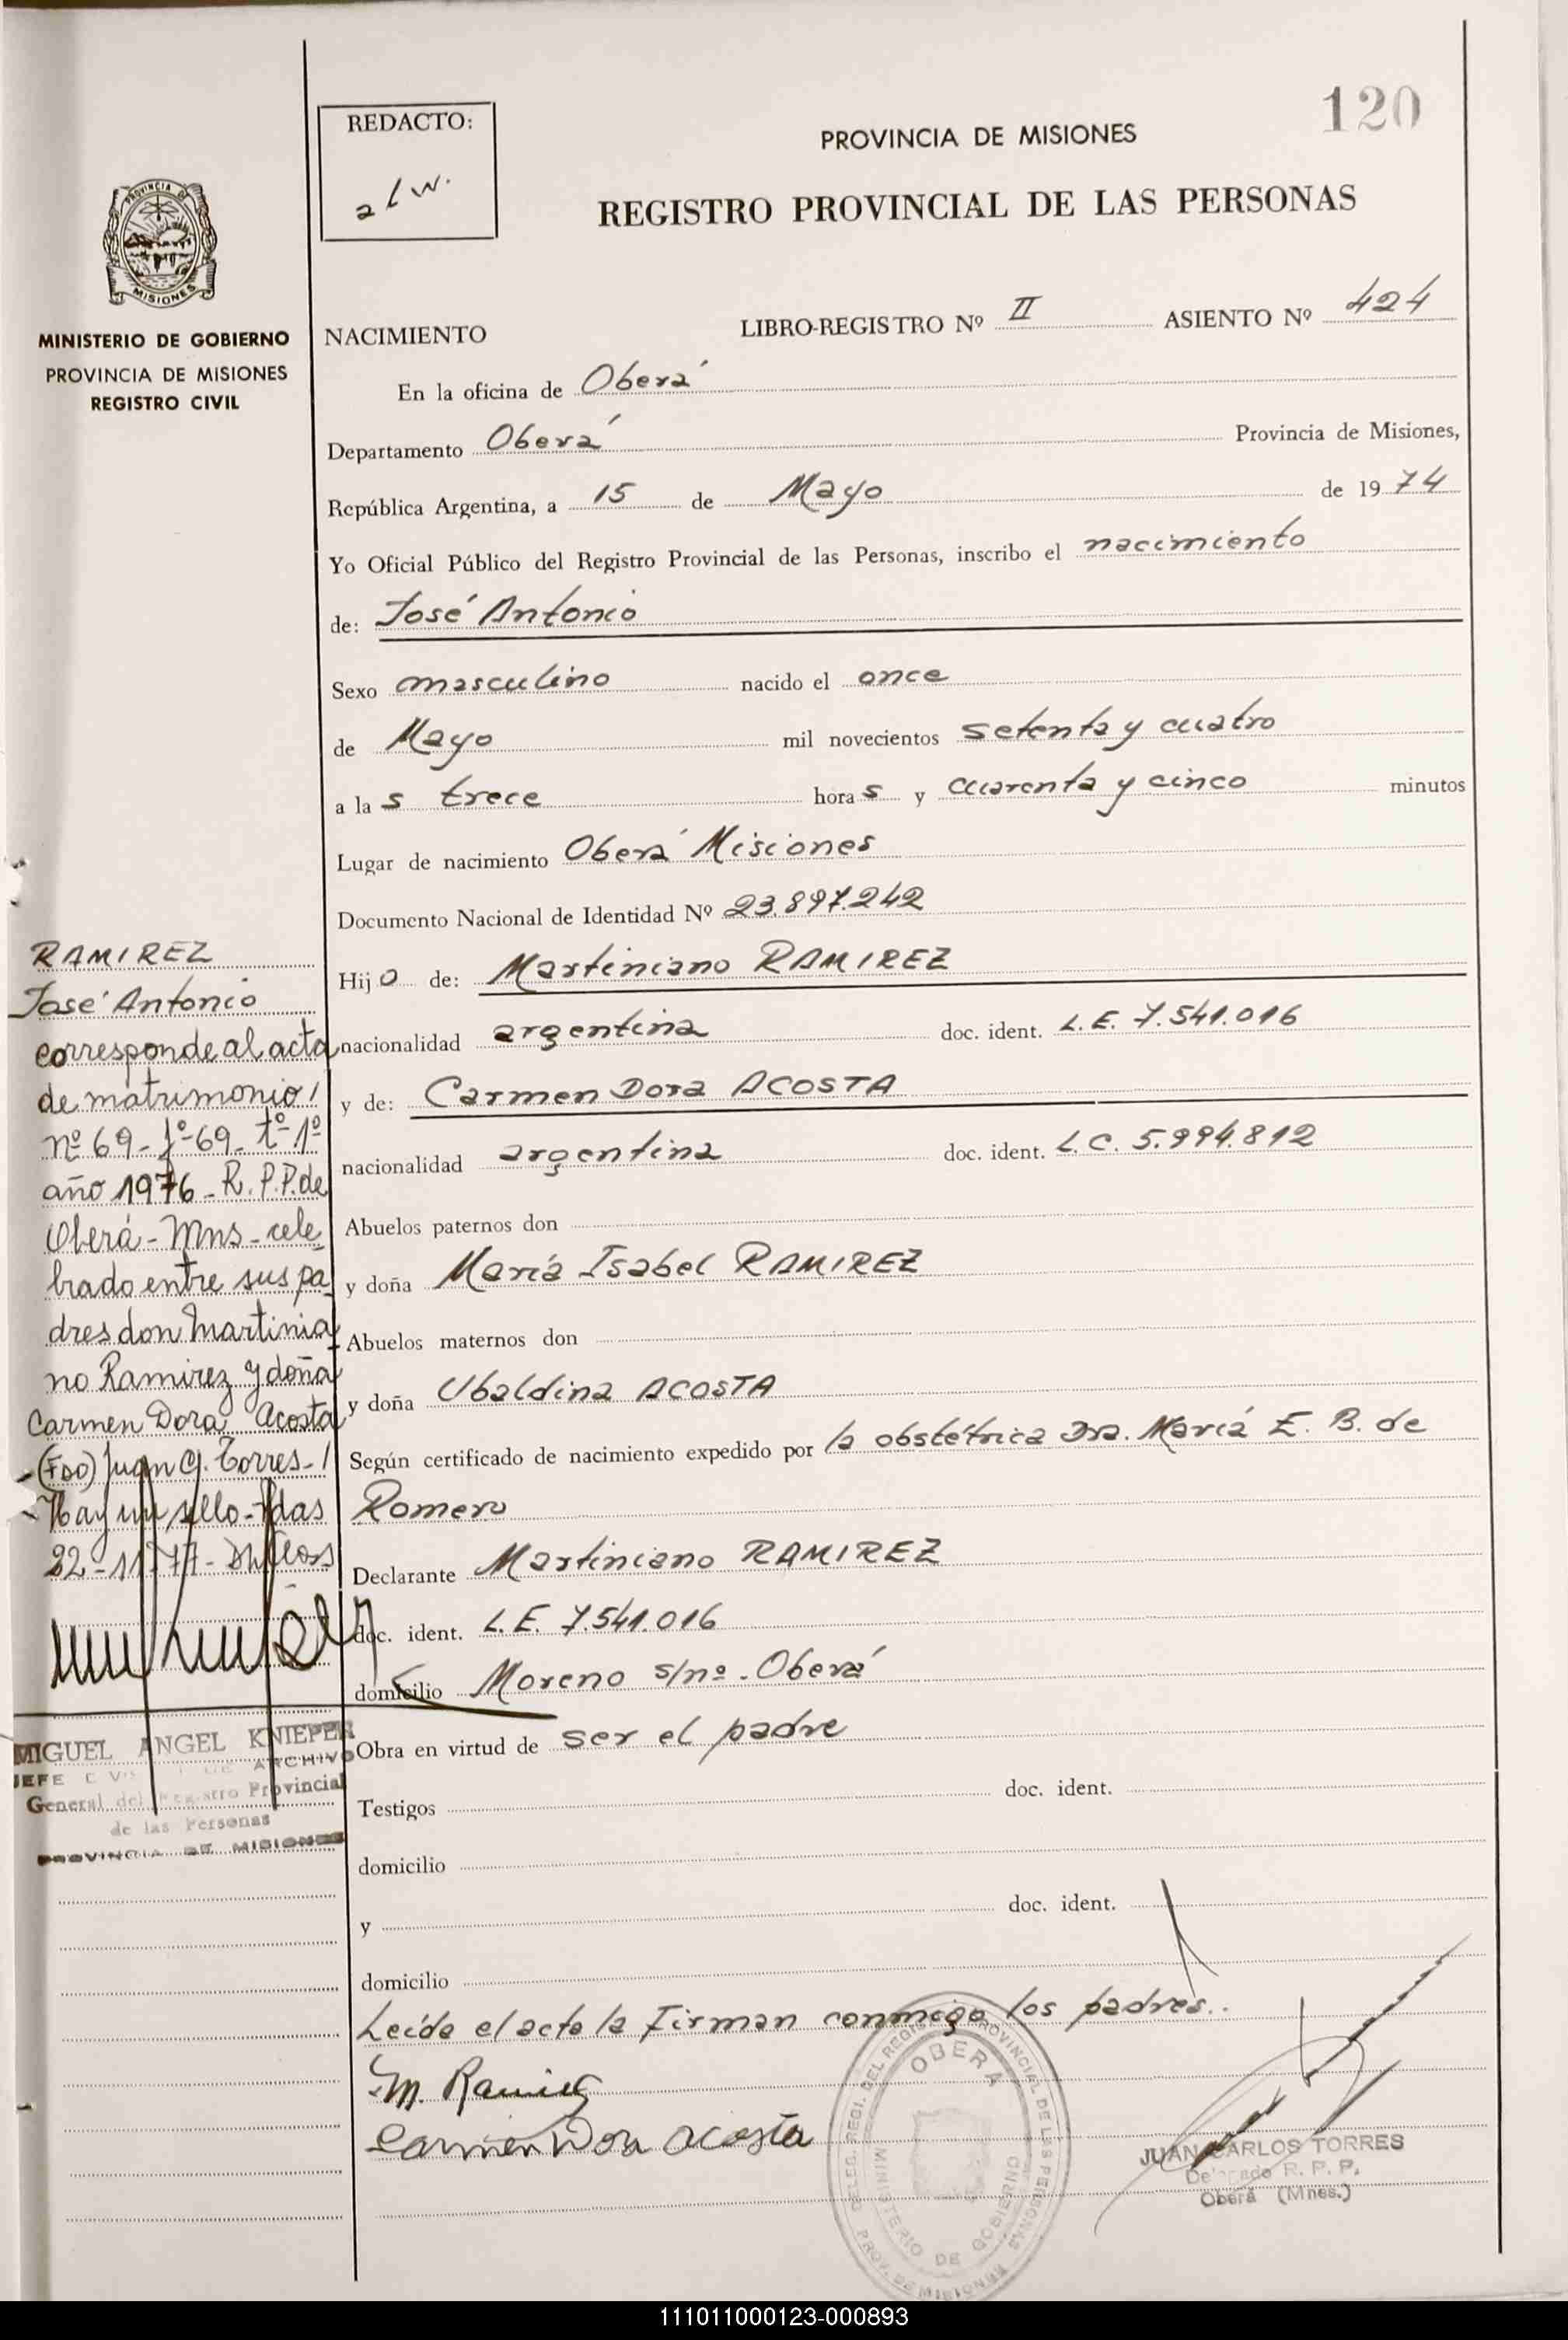 120
REDACTO:
PROVINCIA DE MISIONES
REGISTRO PROVINCIAL DE LAS PERSONAS
PROVINCIA DE
MISIONES
MINISTERIO DE GOBIERNO
PROVINCIA DE MISIONES
REGISTRO CIVIL
NACIMIENTO LIBRO-REGISTRO Nº II ASIENTO Nº 424
En la oficina de Oberá
Departamento Oberá Provincia de Misiones,
República Argentina, a 15 de Mayo de 1974
Yo Oficial Público del Registro Provincial de las Personas, inscribo el nacimiento
de: José Antonio
Sexo masculino nacido el once
de Mayo mil novecientos setenta y cuatro
a las trece horas y cuarenta y cinco minutos
Lugar de nacimiento Oberá Misiones
Documento Nacional de Identidad Nº 23.897.242
Hijo de: Martiniano RAMIREZ
nacionalidad argentina doc. ident. L.E. 7.541.016
y de: Carmen Dora ACOSTA
nacionalidad argentina doc. ident. L.C. 5.994.812
Abuelos paternos don
y doña María Isabel RAMIREZ
Abuelos maternos don
y doña Ubaldina ACOSTA
Según certificado de nacimiento expedido por la obstétrica Dra. María E. B. de
Romero
Declarante Martiniano RAMIREZ
doc. ident. L.E. 7.541.016
domicilio Moreno s/nº - Oberá
Obra en virtud de ser el padre
Testigos doc. ident.
domicilio
y doc. ident.
domicilio
Leída el acta la firman conmigo los padres..
M. Ramirez
Carmen Dora Acosta
RAMIREZ
José Antonio
corresponde al acta
de matrimonio/
nº 69-fº-69-tº-1º
año 1976-R.P.P. de
Oberá-Mns-cele-
brado entre sus pa-
dres don Martinia-
no Ramirez y doña
Carmen Dora Acosta
-(FDO) Juan C. Torres-/
-Hay un sello-Pdas
22-11-77-
MIGUEL ANGEL KNIEPER
JEFE DE ARCHIVO
General del Registro Provincial
de las Personas
PROVINCIA DE MISIONES
DELEG. REGI. DEL REGISTRO PROVINCIAL DE LAS PERSONAS
OBERA
MINISTERIO DE GOBIERNO
PROV. DE MISIONES
JUAN CARLOS TORRES
Delegado R. P. P.
Oberá (Mnes.)
111011000123-000893